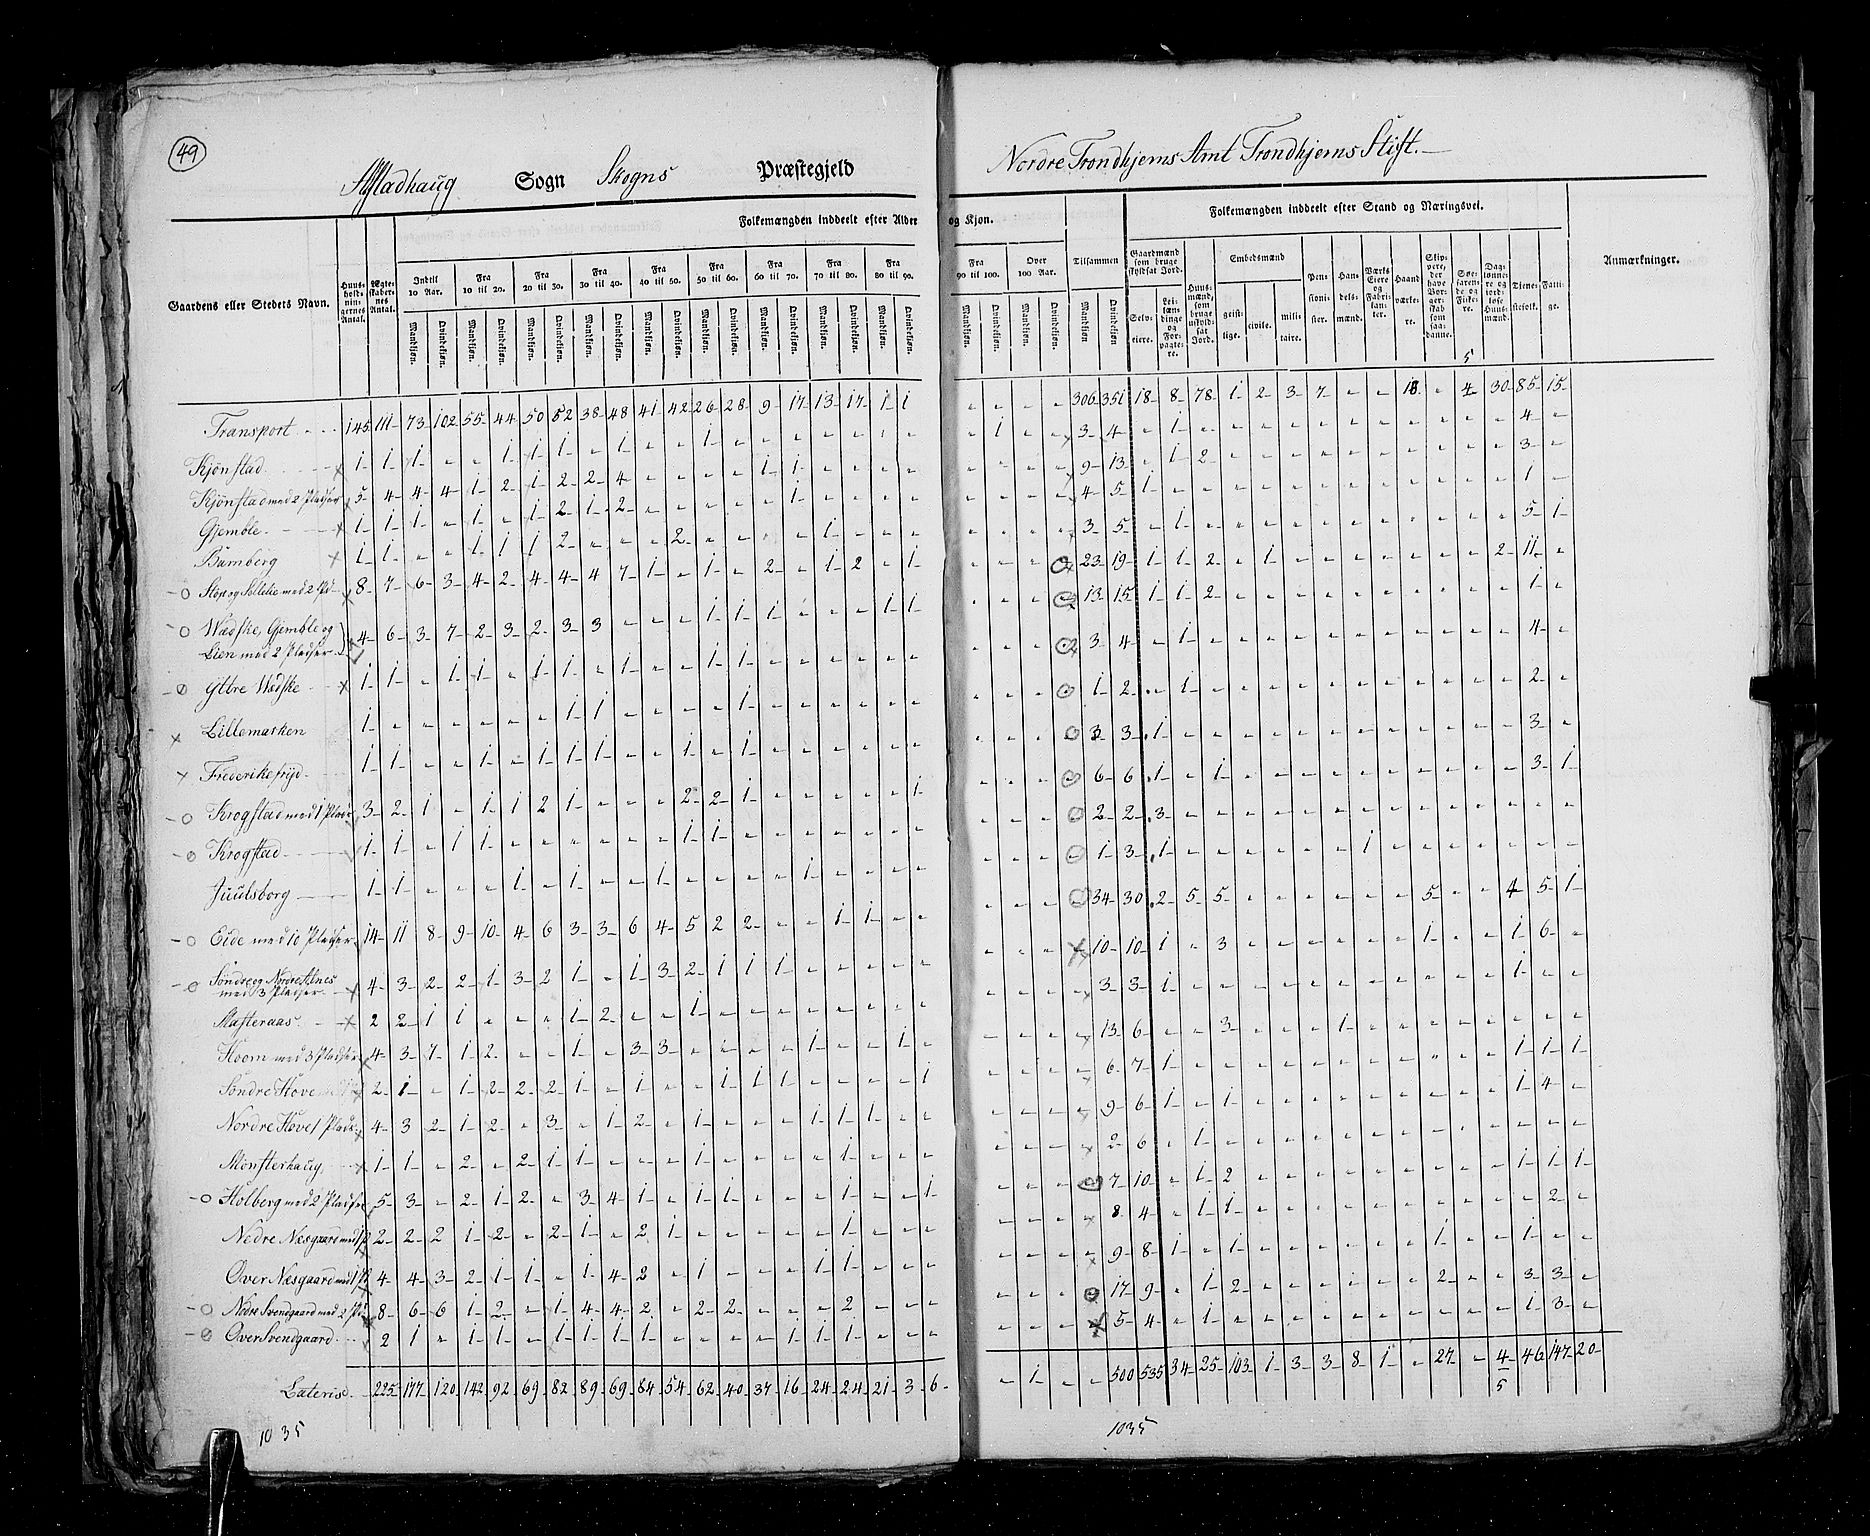 49
Alstadhaug Sogn Skogns Præstegjeld
Nordre Trondhjems Amt Trondhjems Stift.
Gaardens eller Stedets Navn.
Huus-holdnin-gernes Antal.
Ægte-skaber-nes Antal.
Folkemængden inddeelt efter Alder og Kjøn.
Indtil 10 Aar.
Fra 10 til 20.
Fra 20 til 30.
Fra 30 til 40.
Fra 40 til 50.
Fra 50 til 60.
Fra 60 til 70.
Fra 70 til 80.
Fra 80 til 90.
Fra 90 til 100.
Over 100 Aar.
Mandkjøn. Qvindekjøn.
Tilsammen
Mandkjøn Qvindekjøn
Folkemængden inddeelt efter Stand og Næringsvei.
Gaardmænd som bruge skyldsat Jord.
Selv-eiere.
Lei-læn-dinge og For-pagte-re.
Huus-mænd, som bruge uskyld-sat Jord.
Embedsmænd
geist-lige.
civile.
mili-taire.
Pen-sioni-ster.
Han-dels-mænd.
Værks Eiere og Fabri-kan-ter.
Haand-værke-re.
Skip-pere, der have Bor-ger-skab som saa-danne.
Søe-faren-de og Fiske-re.
Dag-lønne-re og jord-løse Huus-mænd.
Tjene-stefolk.
Fatti-ge.
Anmærkninger.
5
Transport 145 111 73 102 55 44 50 52 38 48 41 42 26 28 9 17 13 17 1 1 306 351 18 8 78 1 2 3 7 18 4 30 85 15
Kjønstad 1 1 1 1 1 1 1 1 1 3 4 1 4
Kjønstad med 2 Pladser 5 4 4 4 1 2 1 2 2 4 1 1 9 13 1 2 3
Gjemble 1 1 1 1 1 2 1 2 1 4 5 1 1
Bamberg 1 1 1 1 1 2 2 1 3 5 1 5 1
Stop og Sellelie med 2 Pl 8 7 6 3 4 2 4 4 4 7 1 1 2 1 2 1 23 19 1 1 2 1 2 11
Wædske, Gjemble og
Lien med 2 Pladser 4 6 3 7 2 3 2 3 3 1 1 1 1 1 13 15 1 1 2 1
Yttre Wædske 1 1 1 1 1 1 1 1 1 3 4 1 4
Lillemarken 1 1 1 1 1 2 1 2
Frederikefryd 1 1 1 1 1 1 1 1 3 3 1 3
Krogstad med 1 Plads 3 2 1 1 1 2 1 2 2 1 1 6 6 1 1 3 1
Krogstad 1 1 1 1 1 1 2 2 3
Juulsborg 1 1 1 1 1 1 1 3 1 1
Eide med 10 Pladser 14 11 8 9 10 4 6 3 3 6 4 5 2 2 1 1 34 30 2 5 5 5 4 5 1
Søndre og Nordre Alnes
med 3 Pladser 4 3 2 2 1 3 2 1 1 3 2 1 1 1 10 10 1 3 1 1 6
Masteraas 2 2 1 1 1 2 1 3 3 1 1
Hoem med 3 Pladser 4 3 7 1 2 1 3 3 1 1 13 6 3 1
Søndre Hove 2 1 1 2 2 2 1 1 1 1 1 1 6 7 1 1 1 1
Nordre Hove 1 Plads 4 3 2 1 2 3 1 2 1 1 1 1 9 6 1 1 1 4
Mønsterhaug 1 1 2 2 1 1 1 1 2 6 1
Holberg med 2 Pladser 5 3 2 1 2 3 4 1 1 1 1 1 7 10 1 2 1 1 1
Nedre Næsgaard med 1 Pl 2 2 2 1 2 2 1 2 1 1 8 4 1 1 2
Over Næsgaard med 1 Pl 4 4 3 2 1 1 1 4 2 1 1 1 9 8 1 1 1 1
Nedre Svendgaard med 2 Pl 8 6 6 1 2 1 4 4 2 2 2 2 17 9 1 2 2 3 3
Over Svendgaard 2 1 1 1 1 1 1 1 1 1 1 5 4 1 1 3
Lateris 225 177 120 142 92 69 82 89 69 84 54 62 40 37 16 24 24 21 3 6 1 500 535 34 25 103 1 3 3 8 1 27 4 46 147 20
5
1035
1035